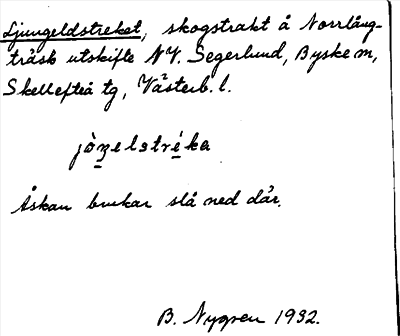 Ljungeldstreket, skogstrakt å Norrlång-
träsk utskifte NV. Segerlund, Byske m,
Skellefteå tg, Västerb. l.
jòn̠elstré̠ka
Åskan brukar slå ned där.
B. Nygren 1932.